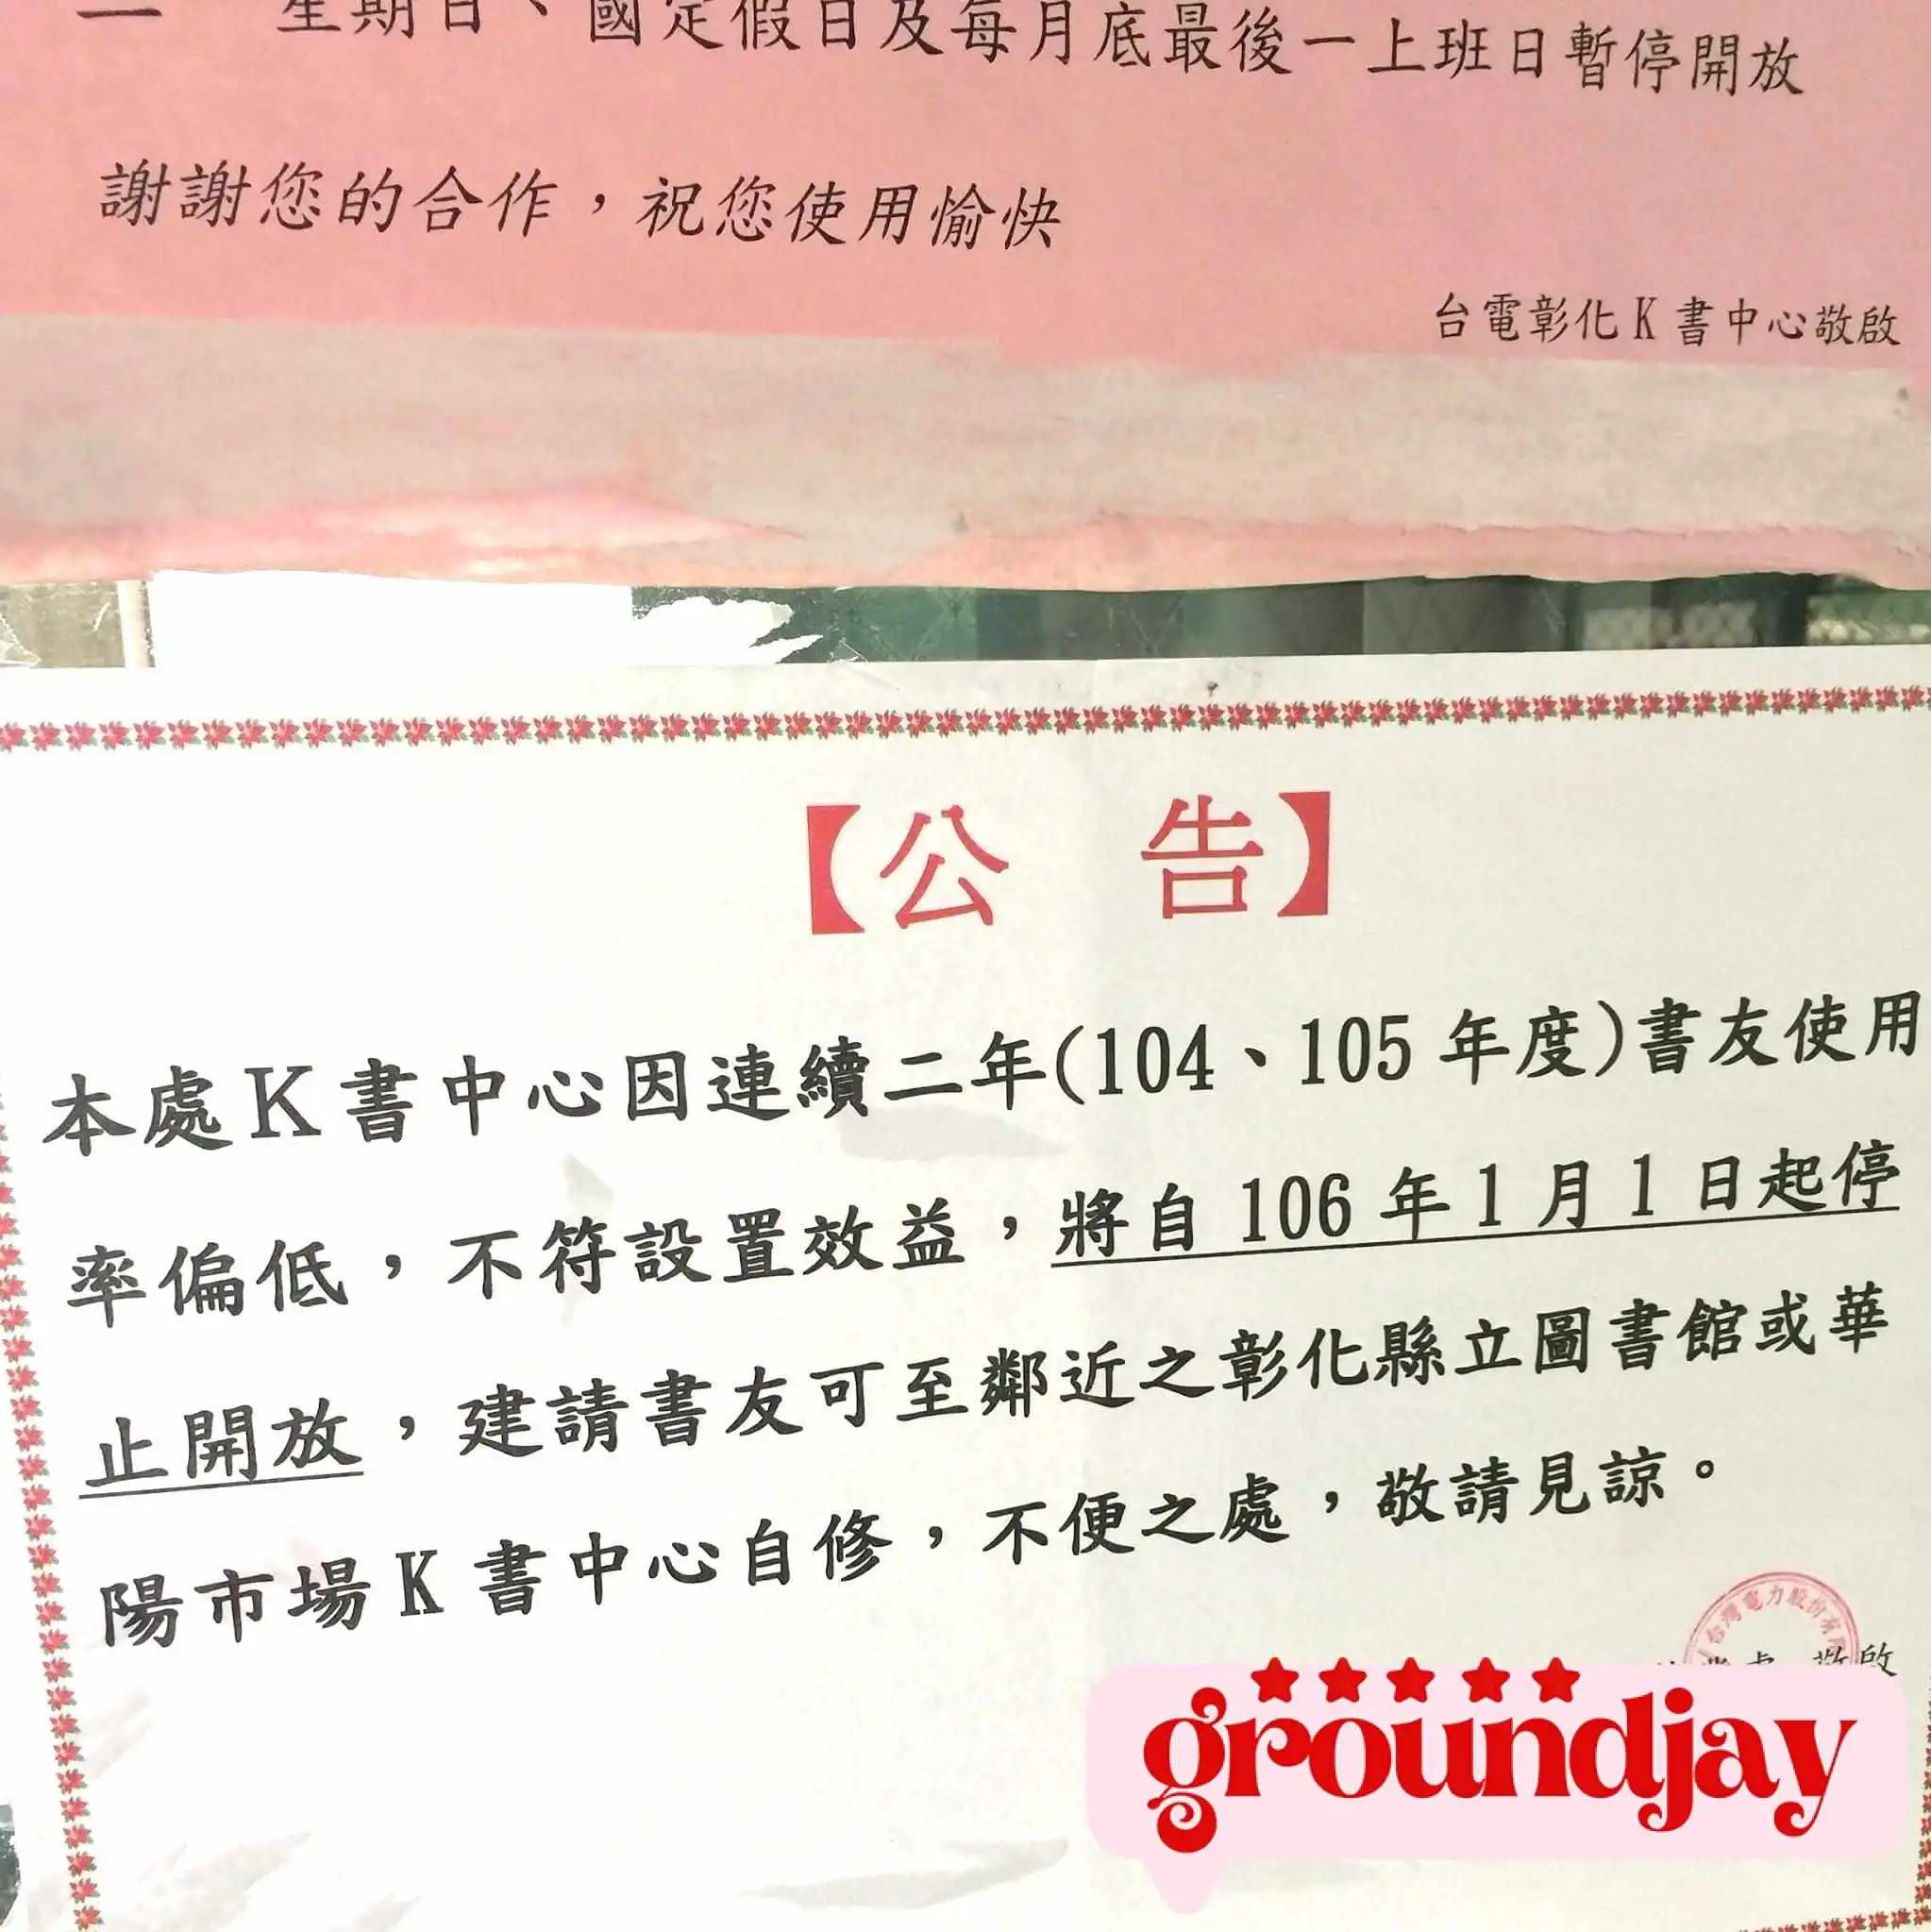 星期日、國定假日及每月底最後一上班日暫停開放
謝謝您的合作，祝您使用愉快
台電彰化K書中心敬啟
【公 告】
本處K書中心因連續二年(104、105年度)書友使用
率偏低，不符設置效益，將自106年1月1日起停
止開放，建請書友可至鄰近之彰化縣立圖書館或華
陽市場K書中心自修，不便之處，敬請見諒。
台灣電力股份有限
敬啟
groundjay